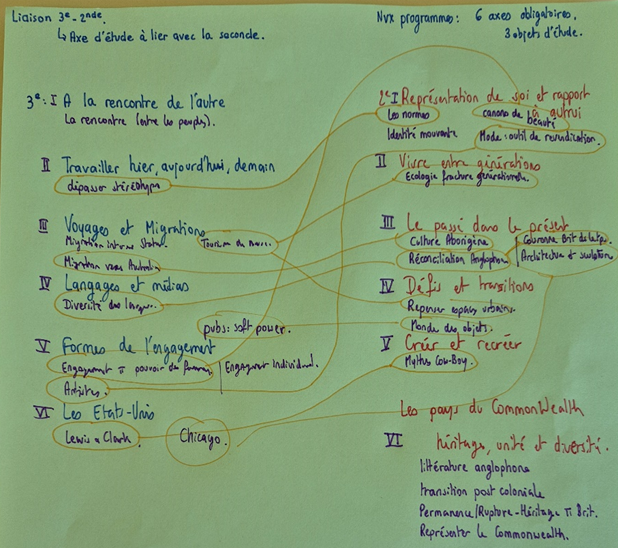 Liaison 3e - 2nde.
↳ Axe d'étude à lier avec la seconde.
Nvx programmes: 6 axes obligatoires.
3 objets d'étude.
3e: I A la rencontre de l'autre
La rencontre (entre les peuples).
II Travailler hier, aujourd'hui, demain
dépasser stéréotype
III Voyages et Migrations
Migration intra States.
Tourism de
Migration vers Australie
IV Langages et médias
Diversité des langues.
pubs: soft power.
V Formes de l'engagement
Engagement π pouvoir des femmes
Engagement individuel.
Artistes.
VI Les Etats-Unis
Lewis & Clark
Chicago.
2e I Représentation de soi et rapport
à autrui
Les normes
canons de
beauté
Identité mouvante
Mode: outil de revendication.
II Vivre entre générations
Ecologie fracture générationnelle.
III Le passé dans le présent
Culture Aborigène
Couronne Brit de
Réconciliation Anglophone
Architecture et
IV Défis et transitions
Repenser espaces urbains.
Monde des objets.
V Créer et recréer
Myths Cow-Boy.
Les pays du CommonWealth
VI héritage, unité et diversité.
littérature anglophone
transition post coloniale
Permanence/Rupture - Héritage π Brit.
Représenter le Commonwealth.